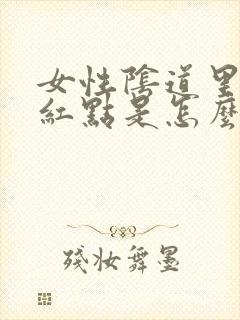 女性陰道里
紅點是怎麼
殘妝舞墨